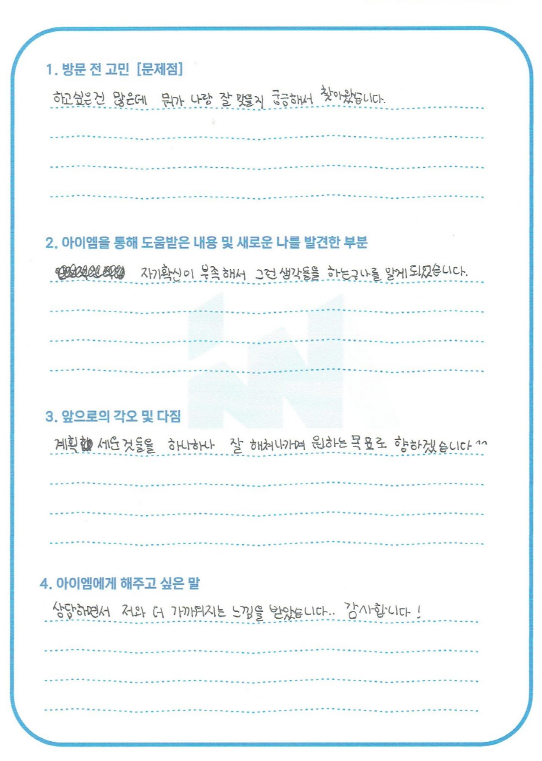 1. 방문 전 고민 [문제점]
하고싶은건 많은데 뭐가 나랑 잘 맞을지 궁금해서 찾아왔습니다.
2. 아이엠을 통해 도움받은 내용 및 새로운 나를 발견한 부분
자기확신이 부족해서 그런 생각들을 하는구나를 알게되었습니다.
3. 앞으로의 각오 및 다짐
계획 세운것들을 하나하나 잘 해쳐나가며 원하는 목표로 향하겠습니다^^
4. 아이엠에게 해주고 싶은 말
상담하면서 저와 더 가까워지는 느낌을 받았습니다.. 감사합니다!